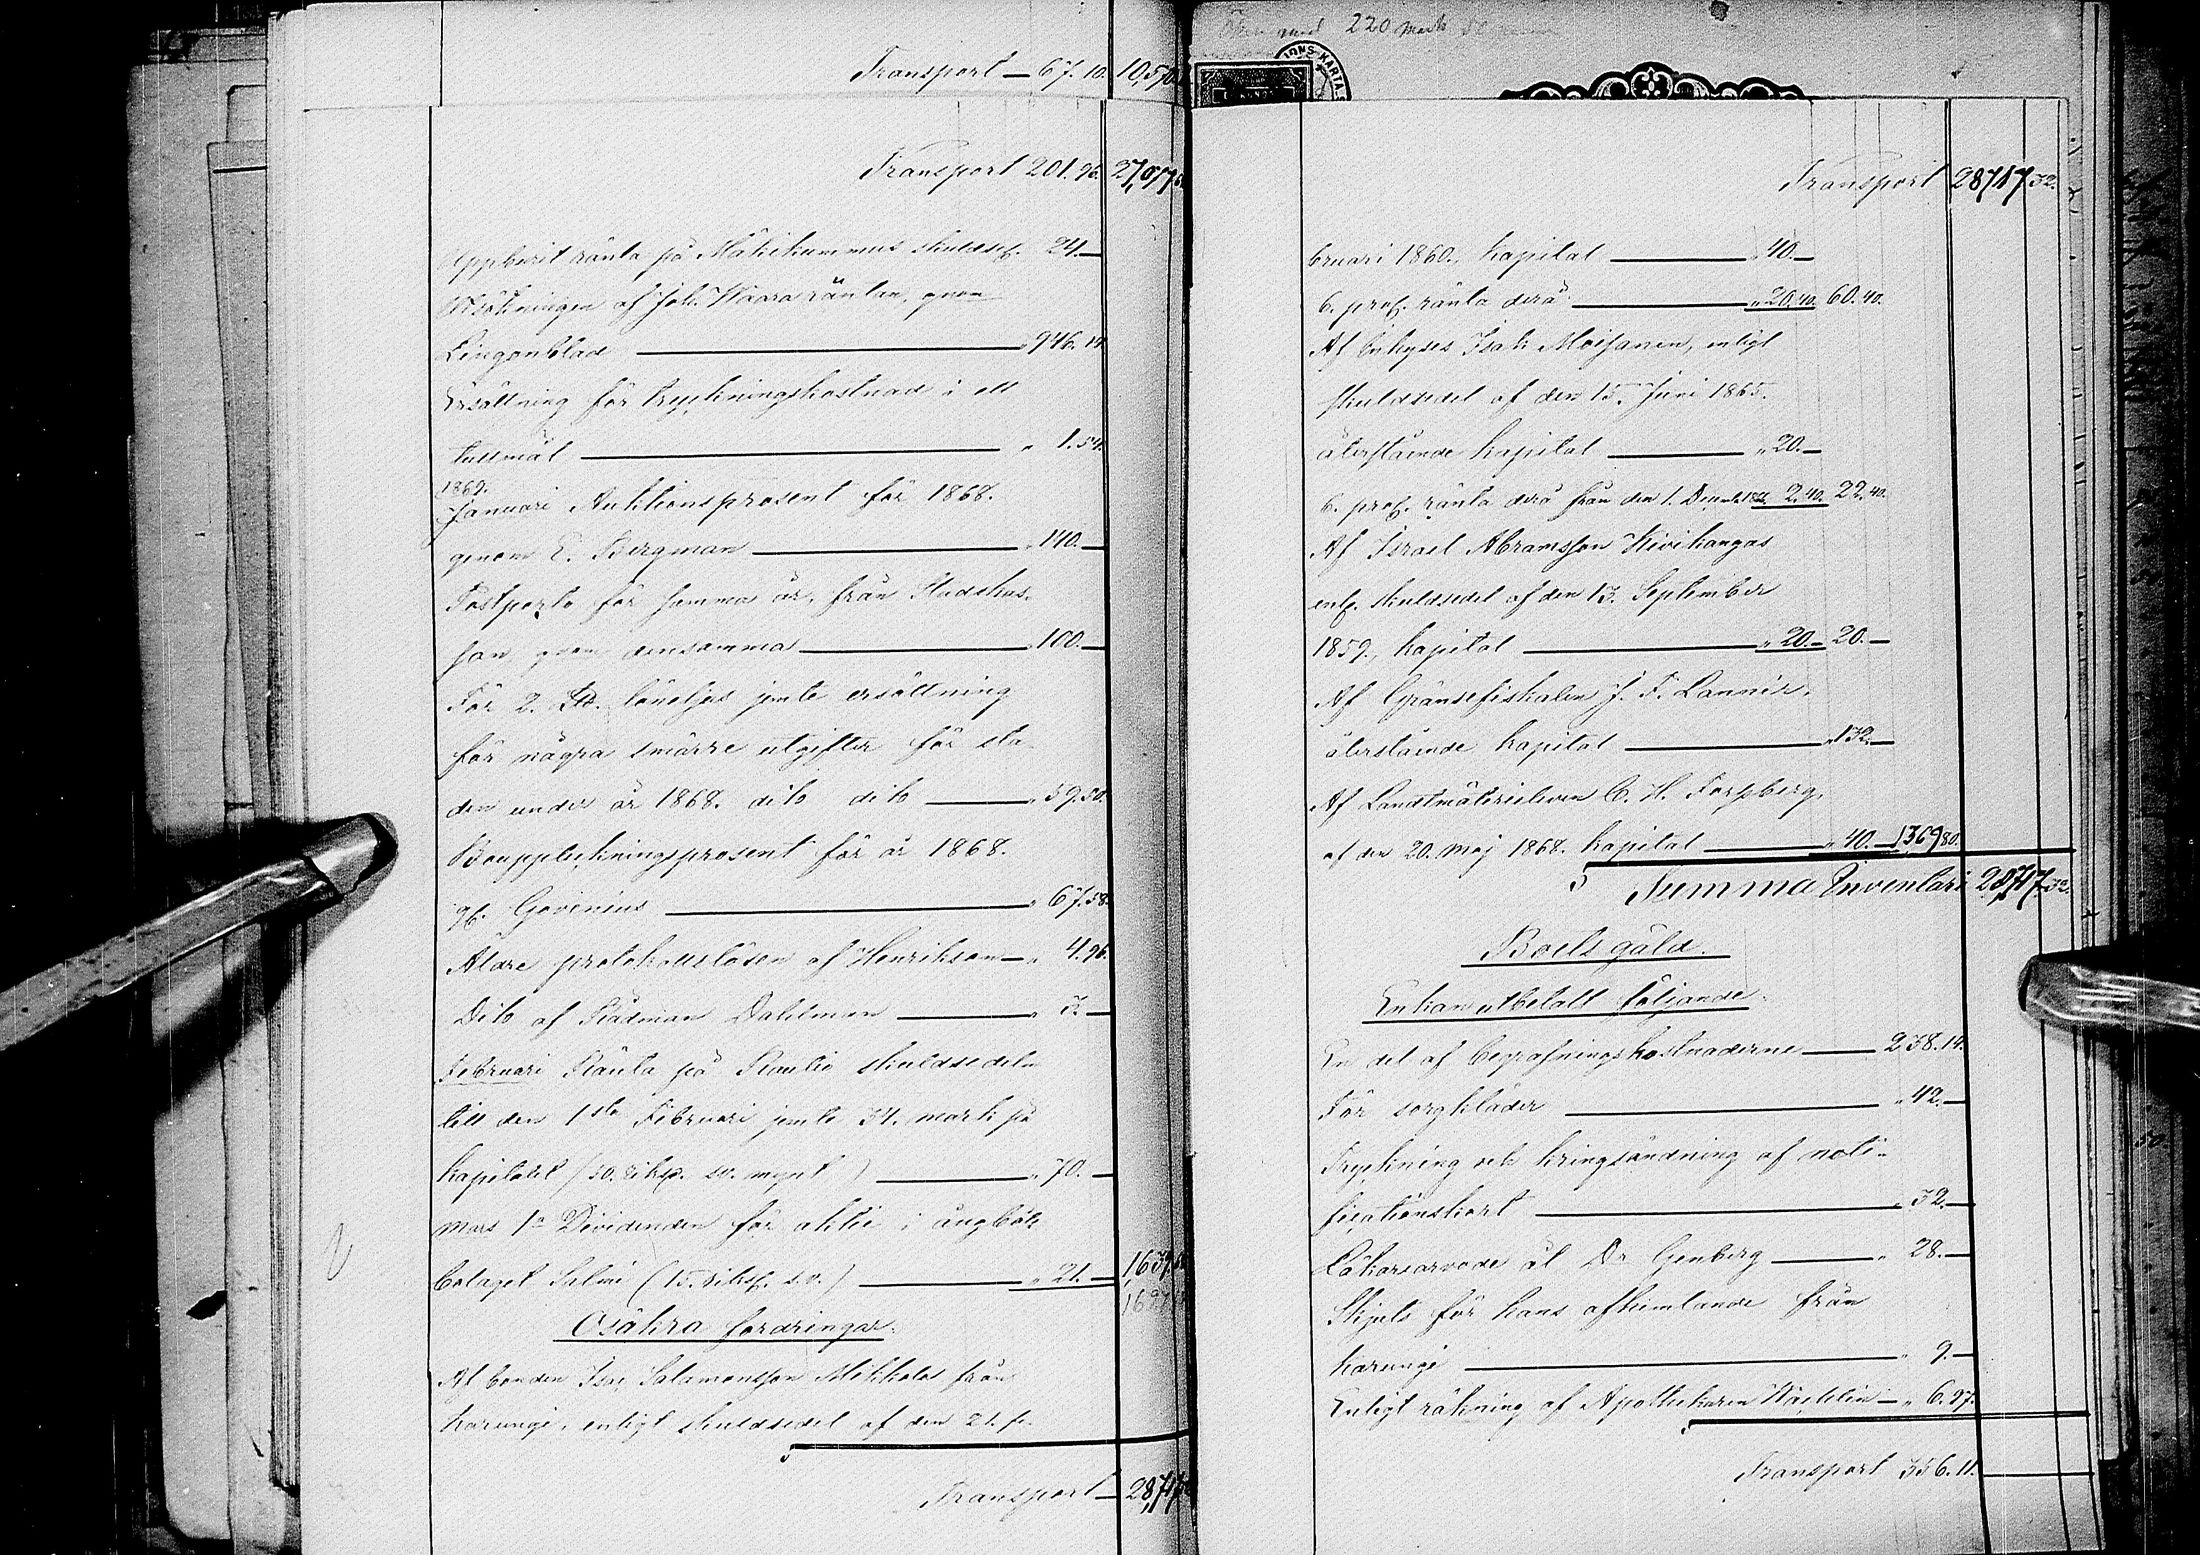 Transport — 67. 10. 10,5
Transport 201. 96. 27,077
Uppburit ränta på Mäkikummus skuldsed. 24.—
Ersättningen af Joh. Waara räntan, genom
Lingonblad — „ 946. 14
Ersättning för tryckningskostnad i ett
tullmål — „ 1. 54.
1869.
Januari Auktionsprosent för 1868.
genom E. Bergman — „ 140.—
Postporto för samma år, från Stadskas-
san, genom densamma — „ 100.—
För 2. Lb. löneljus jemte ersättning
för några smärre utgifter för sta-
den under år 1868. dito dito — „ 59. 50.
Bouppteckningsprosent för år 1868.
gm. Govenius — „ 67. 58.
Äldre protokollslösen af Henrikson — „ 4. 96.
Dito af Rådman Dahlman — „ 3.—
Februari Ränta på Rautio skuldsedeln
till den 1sta Februari jemte 34. mark på
kapitalet (50. riksd. sv. mynt) — „ 70.—
Mars 1a Dividenden för aktie i ångbåts
bolaget Salmi (15. riksd. s.v.) — „ 21.— 1,639
Osäkra fordringar.
Af bonden Isac Salamonsson Mikkolas från
Karungi, enligt skuldsedel af den 21. fe-
Transport — 28,717
220 mark
Transport 28717 32.
bruari 1860., kapital — „ 40.—
6. pros. ränta derå — „ 20. 40. 60. 40.
Af Inhyses Isak Moisanen, enligt
skuldsedel af den 15. Juni 1865.
återstående kapital — „ 20.—
6. pros. ränta derå från den 1. Decemb. 2. 40. 22. 40.
Af Israel Abramsson Kivikangas
enl. skuldsedel af den 13. September
1859., kapital — „ 20.— 20.—
Af Gränsefiskalen J. F. Lannér,
återstående kapital — „ 132.—
Af Landtmätrieleven C. H. Forsberg,
af den 20. Maj 1868. kapital — „ 40.— 1369 80.
Summa Inventari 28717. 32.
Boets gäld.
Enkan utbetalt följande.
En del af begrafningskostnaderne — 238. 14.
För sorgkläder — „ 42.—
Tryckning och kringsändning af noti-
ficationskort — „ 32.—
Läkarearvode åt Dr Genberg — „ 28.—
Skjuts för hans afhemtande från
Karungi — „ 9.—
Enligt räkning af Apothekaren Wæchlin — „ 6. 97.
Transport 356. 11.